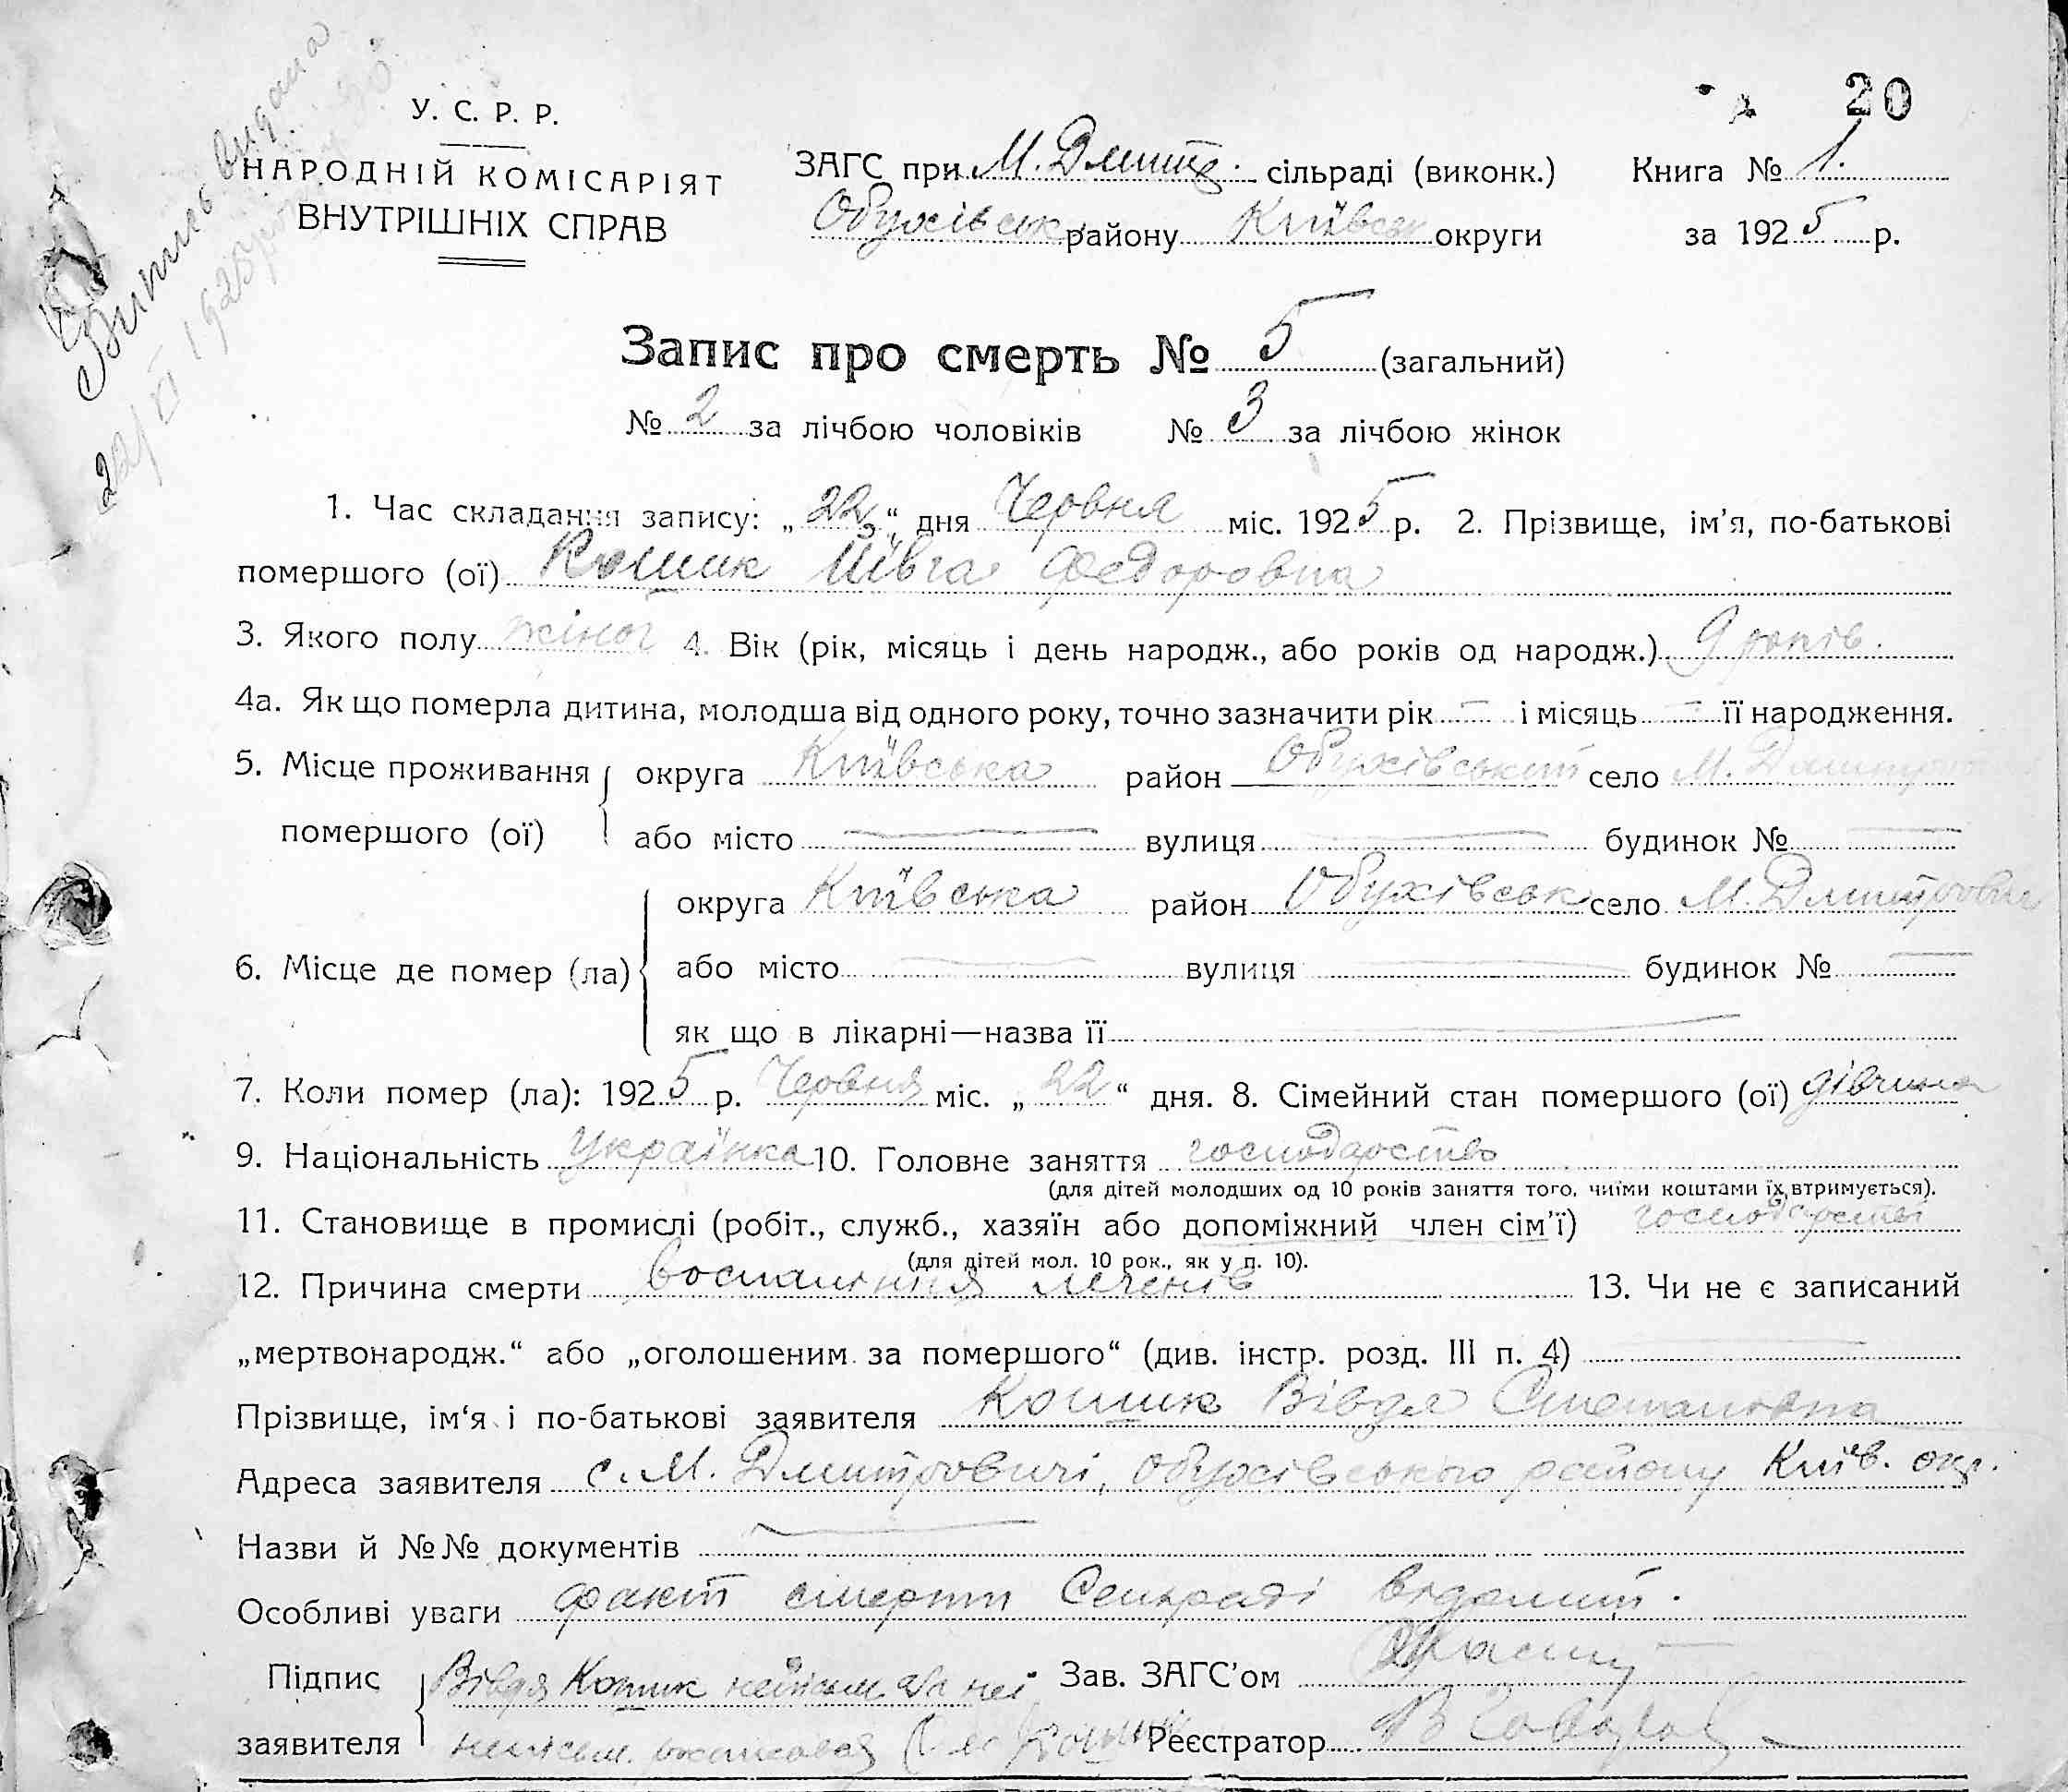 Витись видана
22/VI 1925р
20
У. С. Р. Р.
НАРОДНІЙ КОМІСАРІЯТ
ВНУТРІШНІХ СПРАВ
ЗАГС при М. Дмитр. сільраді (виконк.) Книга № 1.
Обухівськ району Київськ округи за 1925 р.
Запис про смерть № 5 (загальний)
№ 2 за лічбою чоловіків № 3 за лічбою жінок
1. Час складання запису: „22“ дня Червня міс. 1925 р. 2. Прізвище, ім'я, по-батькові
помершого (ої) Кошик Івга Федоровна
3. Якого полу жіноч 4. Вік (рік, місяць і день народж., або років од народж.) 9 років.
4а. Як що померла дитина, молодша від одного року, точно зазначити рік — і місяць — її народження.
5. Місце проживання округа Київська район Обухівський село М. Дмитровичі
помершого (ої) або місто — вулиця — будинок № —
округа Київська район Обухівськ село М. Дмитровичі
6. Місце де помер (ла) або місто — вулиця — будинок № —
як що в лікарні—назва її —
7. Коли помер (ла): 1925 р. Червня міс. „22“ дня. 8. Сімейний стан помершого (ої) дівчина
9. Національність Українка 10. Головне заняття господарство
(для дітей молодших од 10 років заняття того, чиїми коштами їх втримується).
11. Становище в промислі (робіт., служб., хазяїн або допоміжний член сім'ї) господарстві
(для дітей мол. 10 рок., як у п. 10).
12. Причина смерти воспаління легенів 13. Чи не є записаний
„мертвонародж.“ або „оголошеним за помершого“ (див. інстр. розд. III п. 4) —
Прізвище, ім'я і по-батькові заявителя Кошик Вівдя Степановна
Адреса заявителя с. М. Дмитровичі, Обухівського району Київ. окр.
Назви й №№ документів —
Особливі уваги факт смерти Сельраді відомий.
Підпис Вівдя Кошик неписьм. за неї Зав. ЗАГС'ом
заявителя неписьм. Кошик Реєстратор